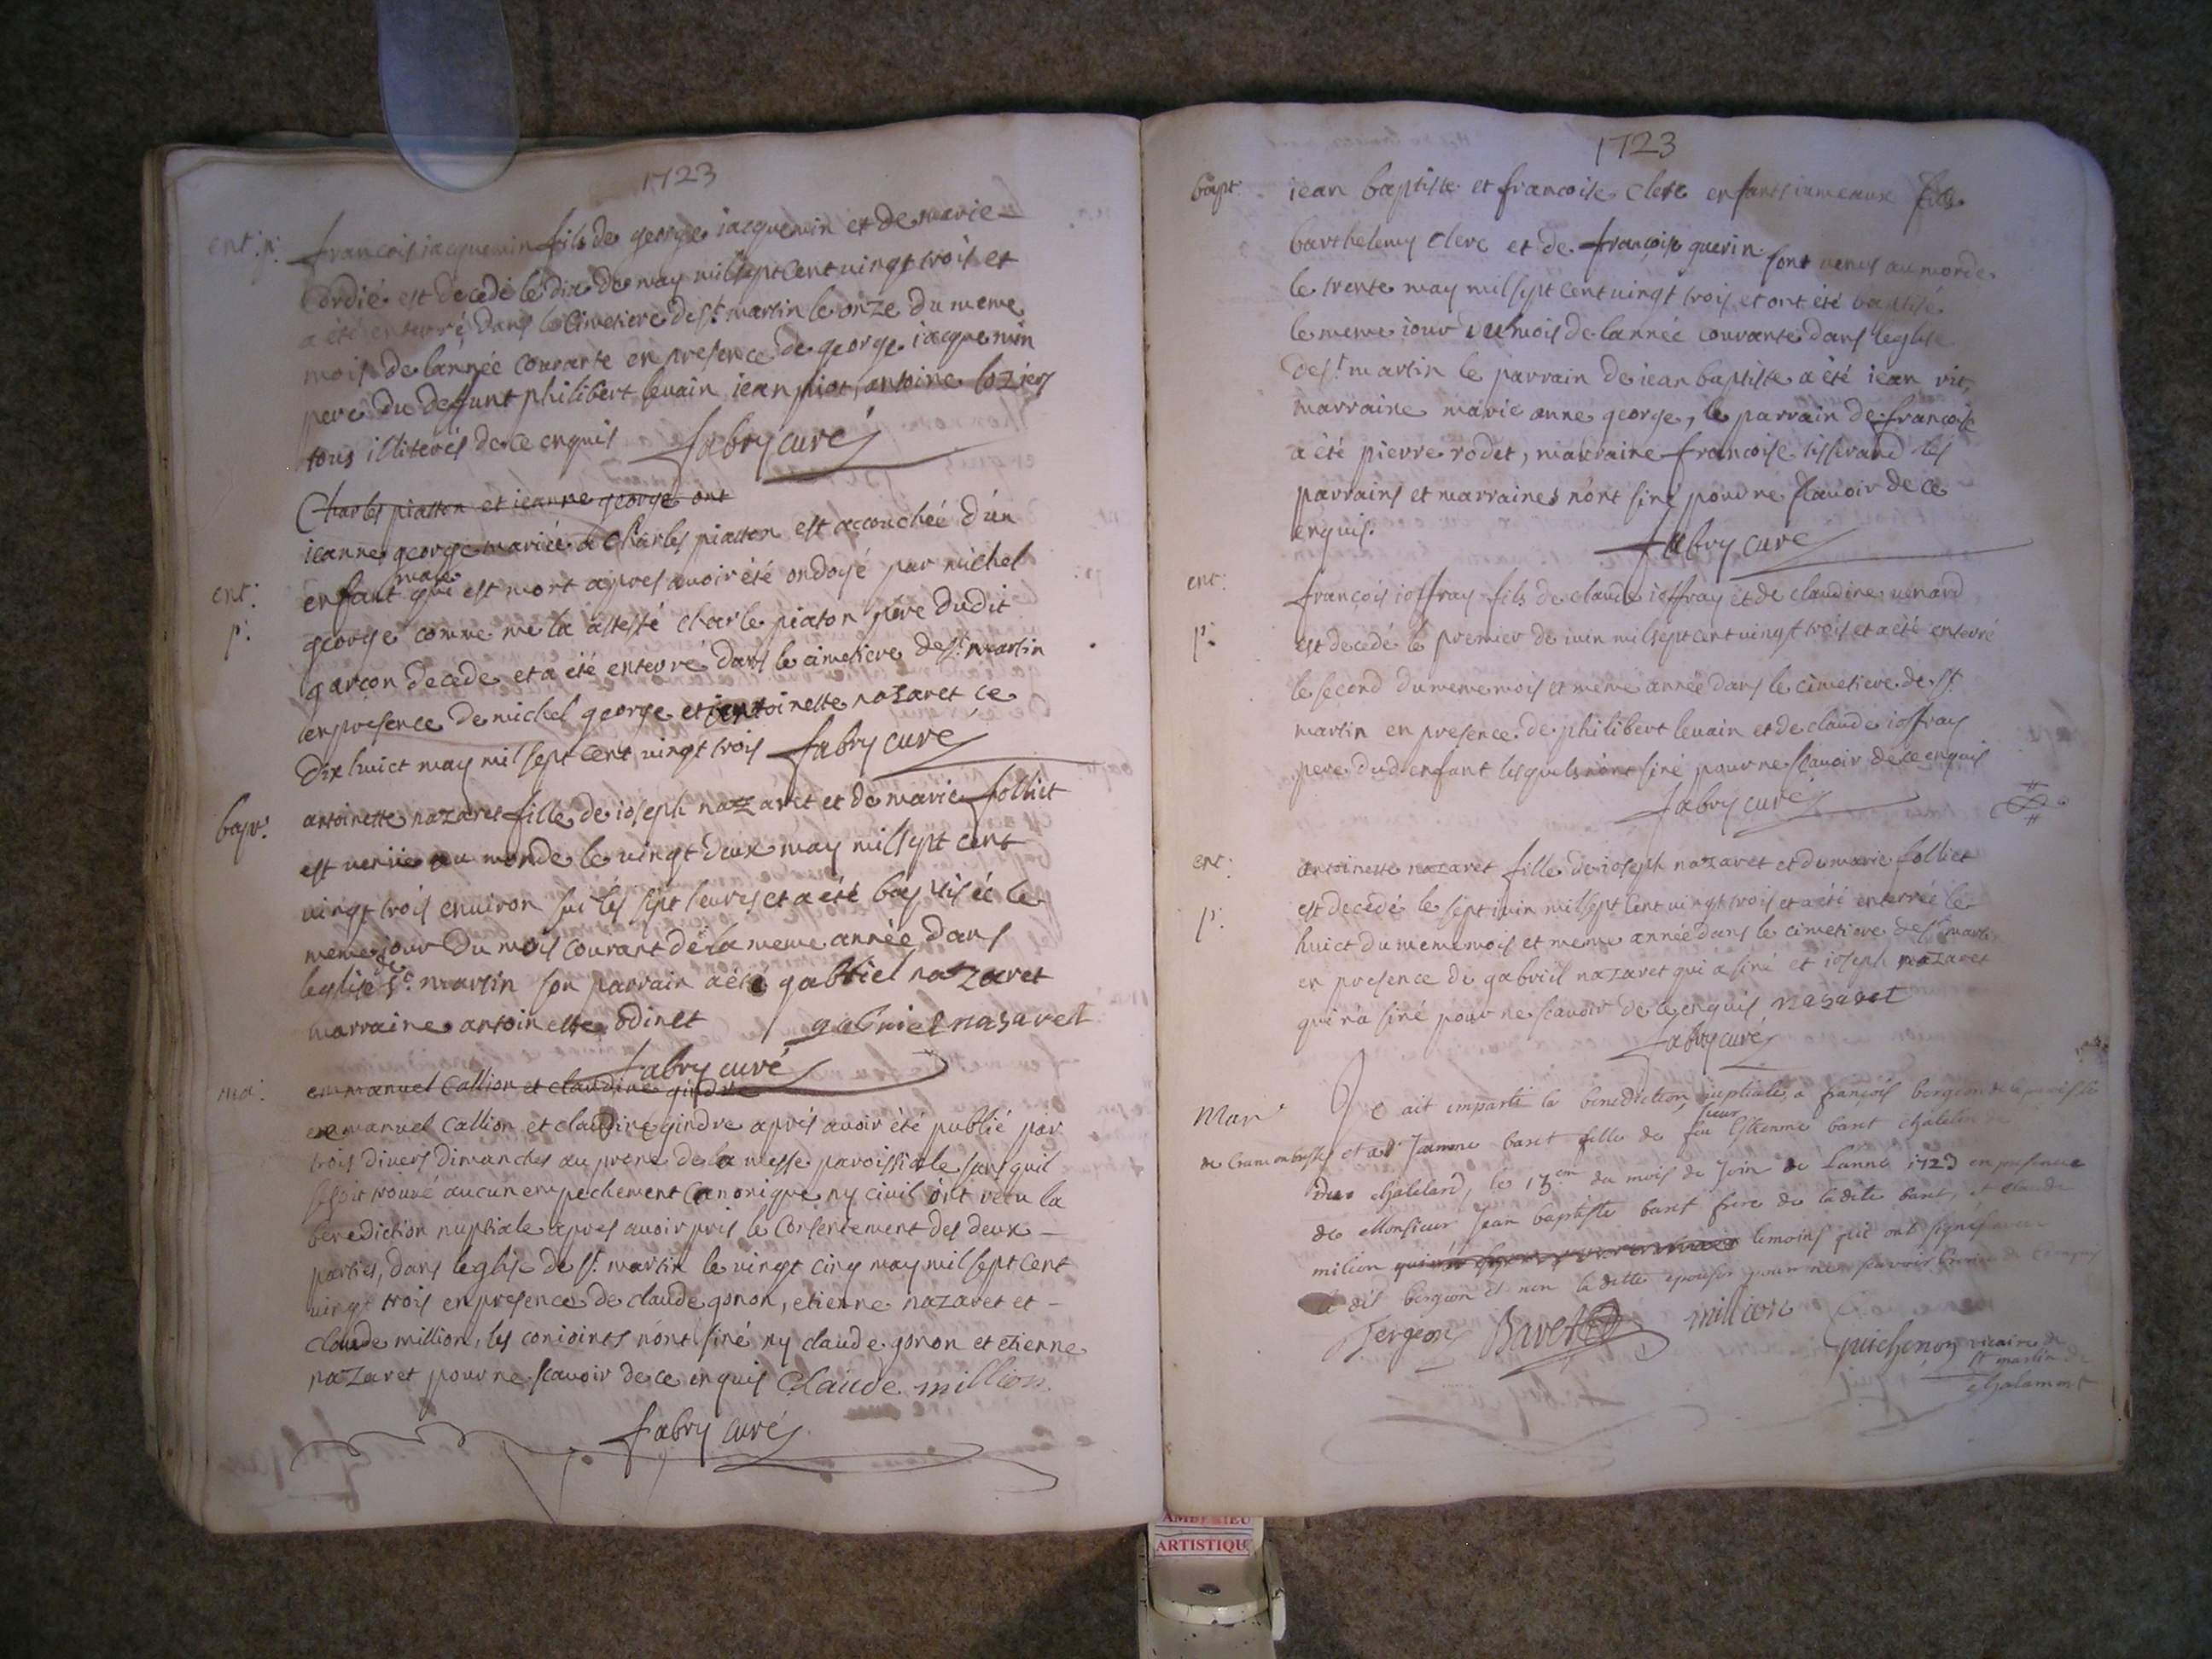 1723
ent: p: francois iacquemin fils de george iacquemin et de marie
cordié est decedé le dix de may mil sept cent vingt trois et
a été enterré dans le cimetiere de st martin le onze du meme
mois de lannée courante en presence de george iacquemin
pere du deffunt philibert levain iean piot, antoine loziers
tous illiterés de ce enquis fabry curé
Charles piatton et ieanne george ont
ieanne george mariée a Charles piatton est accouchée d'un
ent: enfant male qui est mort apres avoir été ondoyé par michel
p: george comme me la attesté charle piaton pere dudit
garçon decede et a été enterré dans le cimetiere de st martin
en presence de michel george et antoinette nazaret ce
dix huict may mil sept cent vingt trois fabry curé
bapt: antoinette nazaret fille de ioseph nazaret et de marie folliet
est venüe au monde le vingt deux may mil sept cent
vingt trois environ sur les sept heures et a été baptisée le
meme jour du mois courant de la meme année dans
leglise de st martin son parrain a été gabriel nazaret
marraine antoinette odinet gabriel nasaret
fabry curé
mar: emmanuel Callion et claudine gindre
emmanuel Callion et claudine gindre aprés avoir été publié par
trois divers dimanches au prone de la messe paroissiale sans quil
se soit trouvé aucun empechement canonique ny civil ont recu la
benediction nuptiale apres avoir pris le consentement des deux
parties, dans leglise de st martin le vingt cinq may mil sept cent
vingt trois en presence de claude gonon, etienne nazaret et
claude million, les conioints n'ont siné ny claude gonon et etienne
nazaret pour ne scavoir de ce enquis Claude million
fabry curé
1723
bapt: iean baptiste et francoise clerc enfants iumeaux fils
barthelemy clerc et de françoise guerin sont venus au monde
le trente may mil sept cent vingt trois et ont été baptisé
le meme iour du mois de lannée courante dans leglise
de st martin le parrain de iean baptiste a été iean
marraine marie anne george, le parrain de francoise
a été pierre rodet, marraine francoise tisserand les
parrains et marraines n'ont siné pour ne scavoir de ce
enquis. fabry curé
ent: françois ioffray fils de claude ioffray et de claudine venard
p: est decedé le premier de iuin mil sept cent vingt trois et a été enterré
le second du meme mois et meme année dans le cimetiere de st
martin en presence de philibert levain et de claude ioffray
pere dud enfant lesquels n'ont siné pour ne scavoir de ce enquis
fabry curé
ent: antoinette nazaret fille de ioseph nazaret et du marie folliet
p: est decedé le sept iuin mil sept cent vingt trois et a été enterrée le
huict du meme mois et meme année dans le cimetiere de st martin
en presence de gabriel nazaret qui a siné et ioseph nazaret
qui n'a siné pour ne scavoir de ce enquis nasaret
fabry curé
Mar Je ait imparti la benediction nuptiale, a françois bergeon de la paroisse
de et a Jeanne baret fille de feu sieur Estienne baret chatelin
du Chatelard, le 13em du mois de Join de Lanné 1723 en presence
de Monsieur Jean baptiste baret frere de la dite baret, et claude
milion temoins qui ont signes avec
le dit bergeon et non la ditte epouse pour ne scavoir
Bergeon Baret million
puichenon vicaire de
st martin de
Chalamont
AMBERIEU
ARTISTIQU